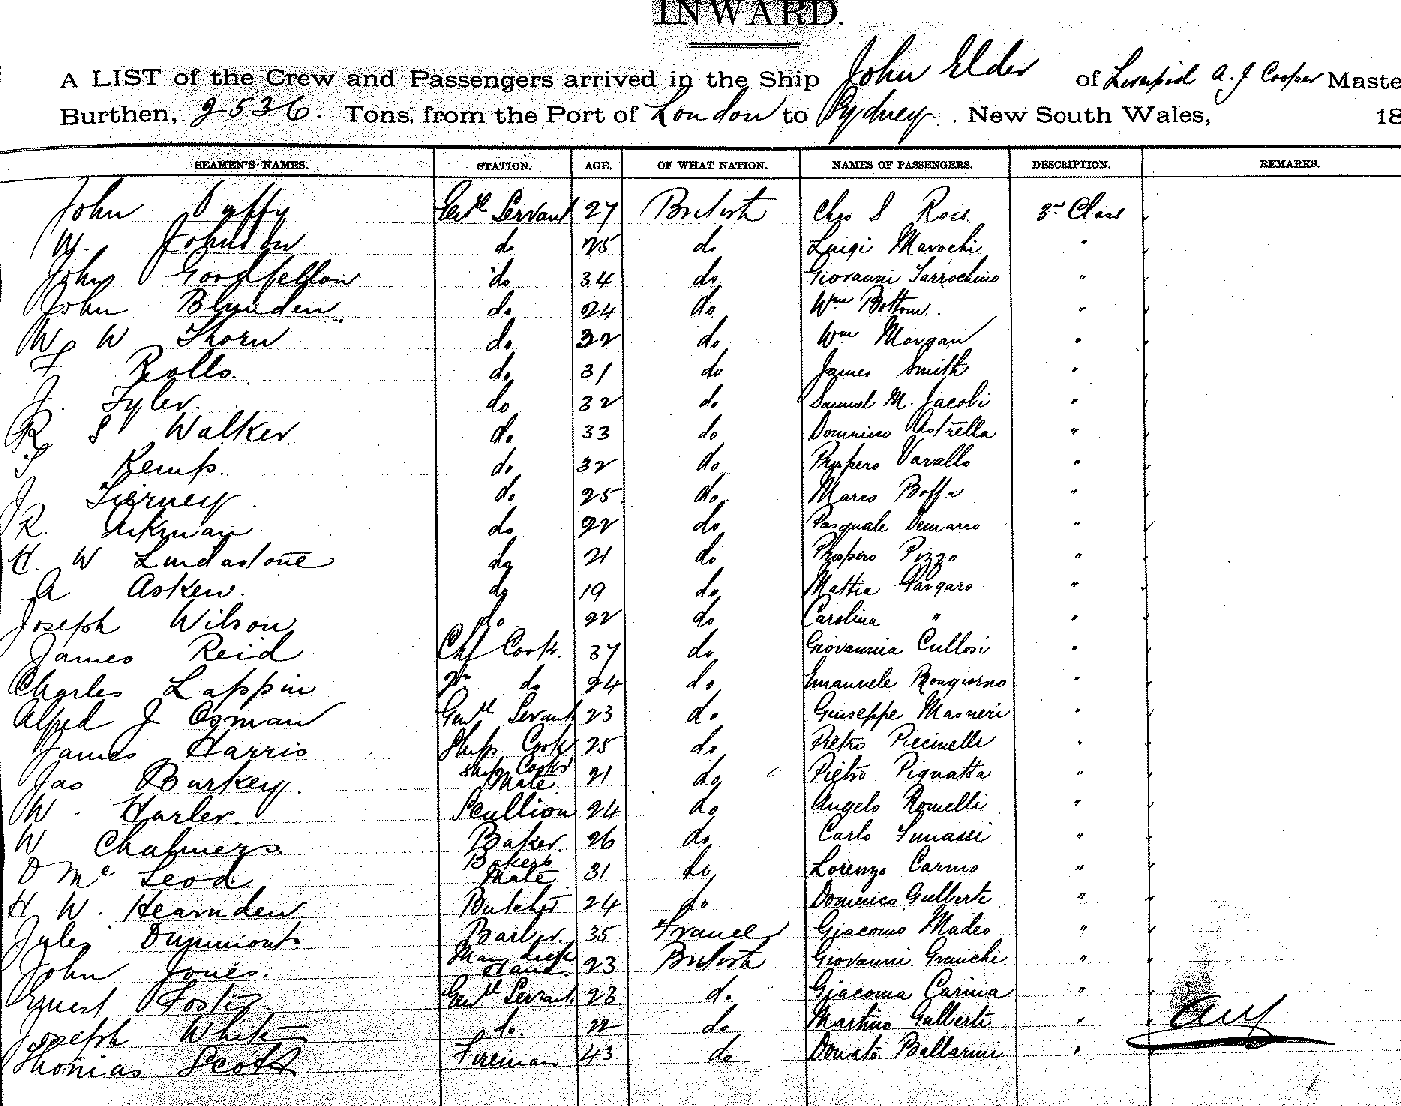 INWARD.
A LIST of the Crew and Passengers arrived in the Ship John Elder of Liverpool A. J Cooper Maste
Burthen, 2536. Tons, from the Port of London to Sydney. New South Wales, 18
SEAMEN'S NAMES. STATION. AGE. OF WHAT NATION. NAMES OF PASSENGERS. DESCRIPTION. REMARKS.
John Duffy Genl Servant 27 British Chas S Ross 3rd Class
W. Johnston do 25 do Luigi Marochi "
John Goodfellow do 34 do Giovanni "
John Blunden do 24 do Wm Bottom. "
W W Thorn do 32 do Wm Morgan "
F Rolls. do 31 do James Smith "
J. Tyler do 32 do Samuel M. Jacobi "
R S Walker do 33 do Domenico Astrella "
Kemp. do 32 do Prospero Varallo "
J Tierney do 25 do Marco Boffa "
R. Aikman do 22 do Pasquale Demarco "
H. W Lindastone do 21 do Prospero Pizzo "
A Askew. do 19 do Mattia Pangaro "
Joseph Wilson do 22 do Carolina " "
James Reid Chf Cook. 37 do Giovannia Cullosi "
Charles Lappin 2n do 24 do Emanuele Bongiorno "
Alfred J Osman Genl Servant 23 do Giuseppe Masneri "
James Harris Ships Cook 25 do Pietro Piccinelli "
Jas Burkey. Ships Cooks Mate 21 do Pietro Pignatta "
W. Harler. Scullion 24 do Angelo Romelli "
W Chalmers Baker. 26 do Carlo "
D McLeod Bakers Mate 31 do Lorenzo "
H W. Hearnden Butcher 24 do Domenico Gulberti "
Jules Dumont Barber 35 France Giacomo Madeo "
John Jones. 23 British Giovanni Granchi "
Ernest Foster Genl Servant 23 do Giacoma Carina "
Joseph White do. 22 do Martino Gulberti "
Thomas Scott Fireman 43 do Donato Ballarini "